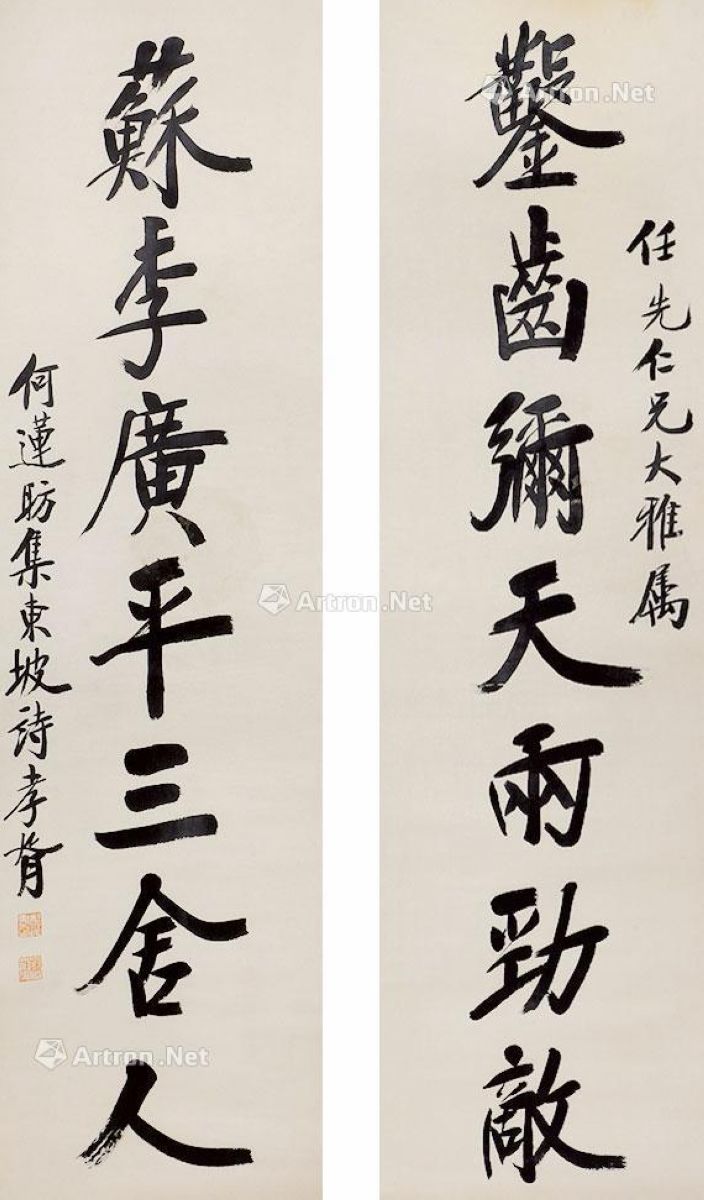 任先仁兄大雅属
鑿齒彌天兩勁敵
蘇李廣平三舍人
何蓮舫集東坡詩孝胥
Artron.Net
Artron.Net
Artron.Net